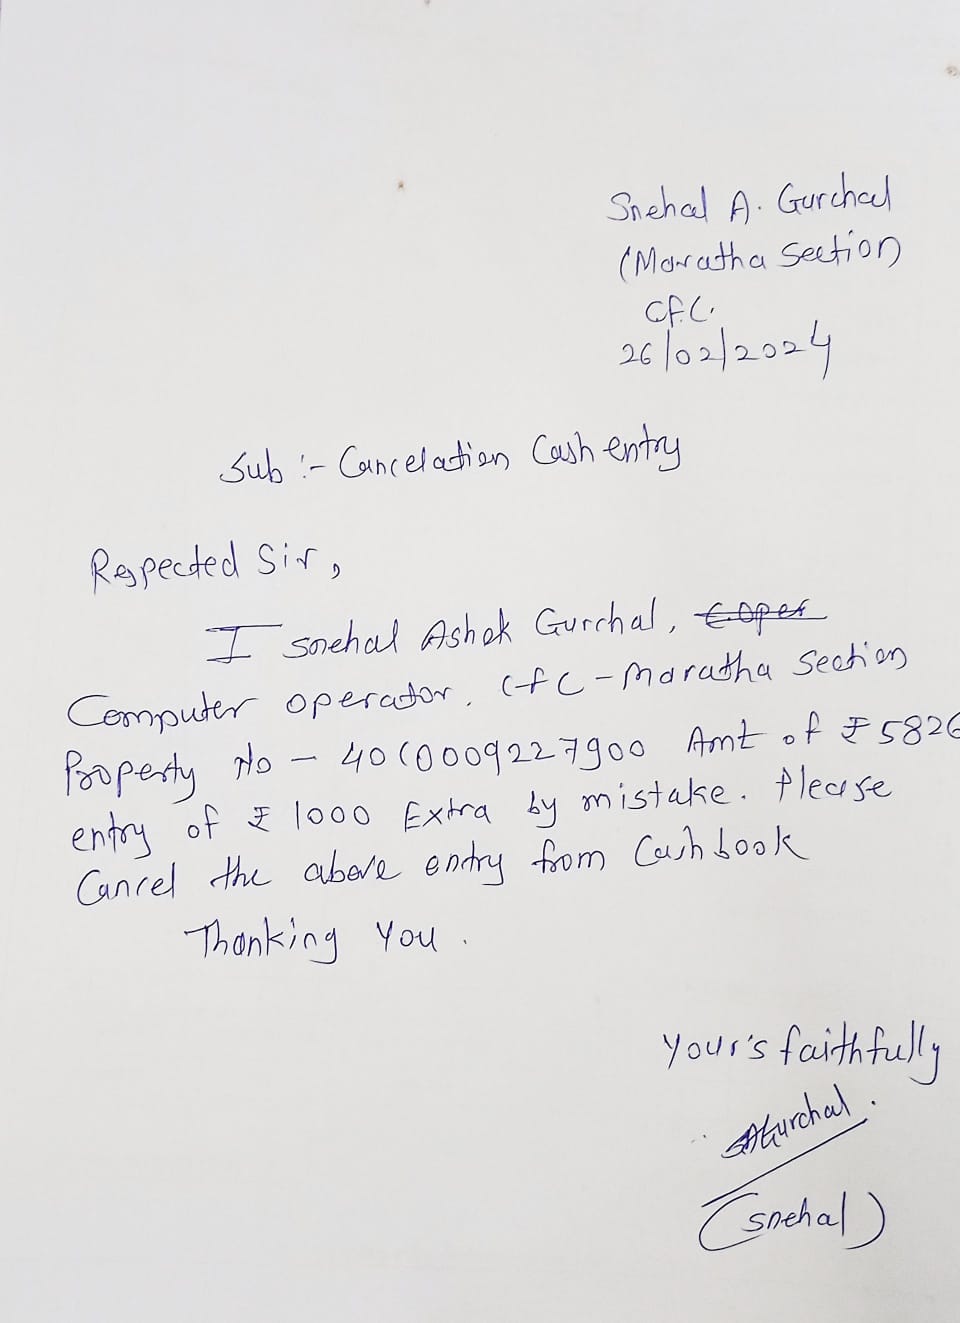 Snehal A. Gurchal
(Maratha Section)
CFC.
26/02/2024
Sub :- Cancelation Cash entry
Respected Sir,
I snehal Ashok Gurchal,
Computer operator, CFC - Maratha Section
Property No - Amt of ₹ 5826
entry of ₹ 1000 Extra by mistake. Please
Cancel the above entry from Cashbook
Thanking You.
Your's faithfully
SAGurchal.
(snehal)